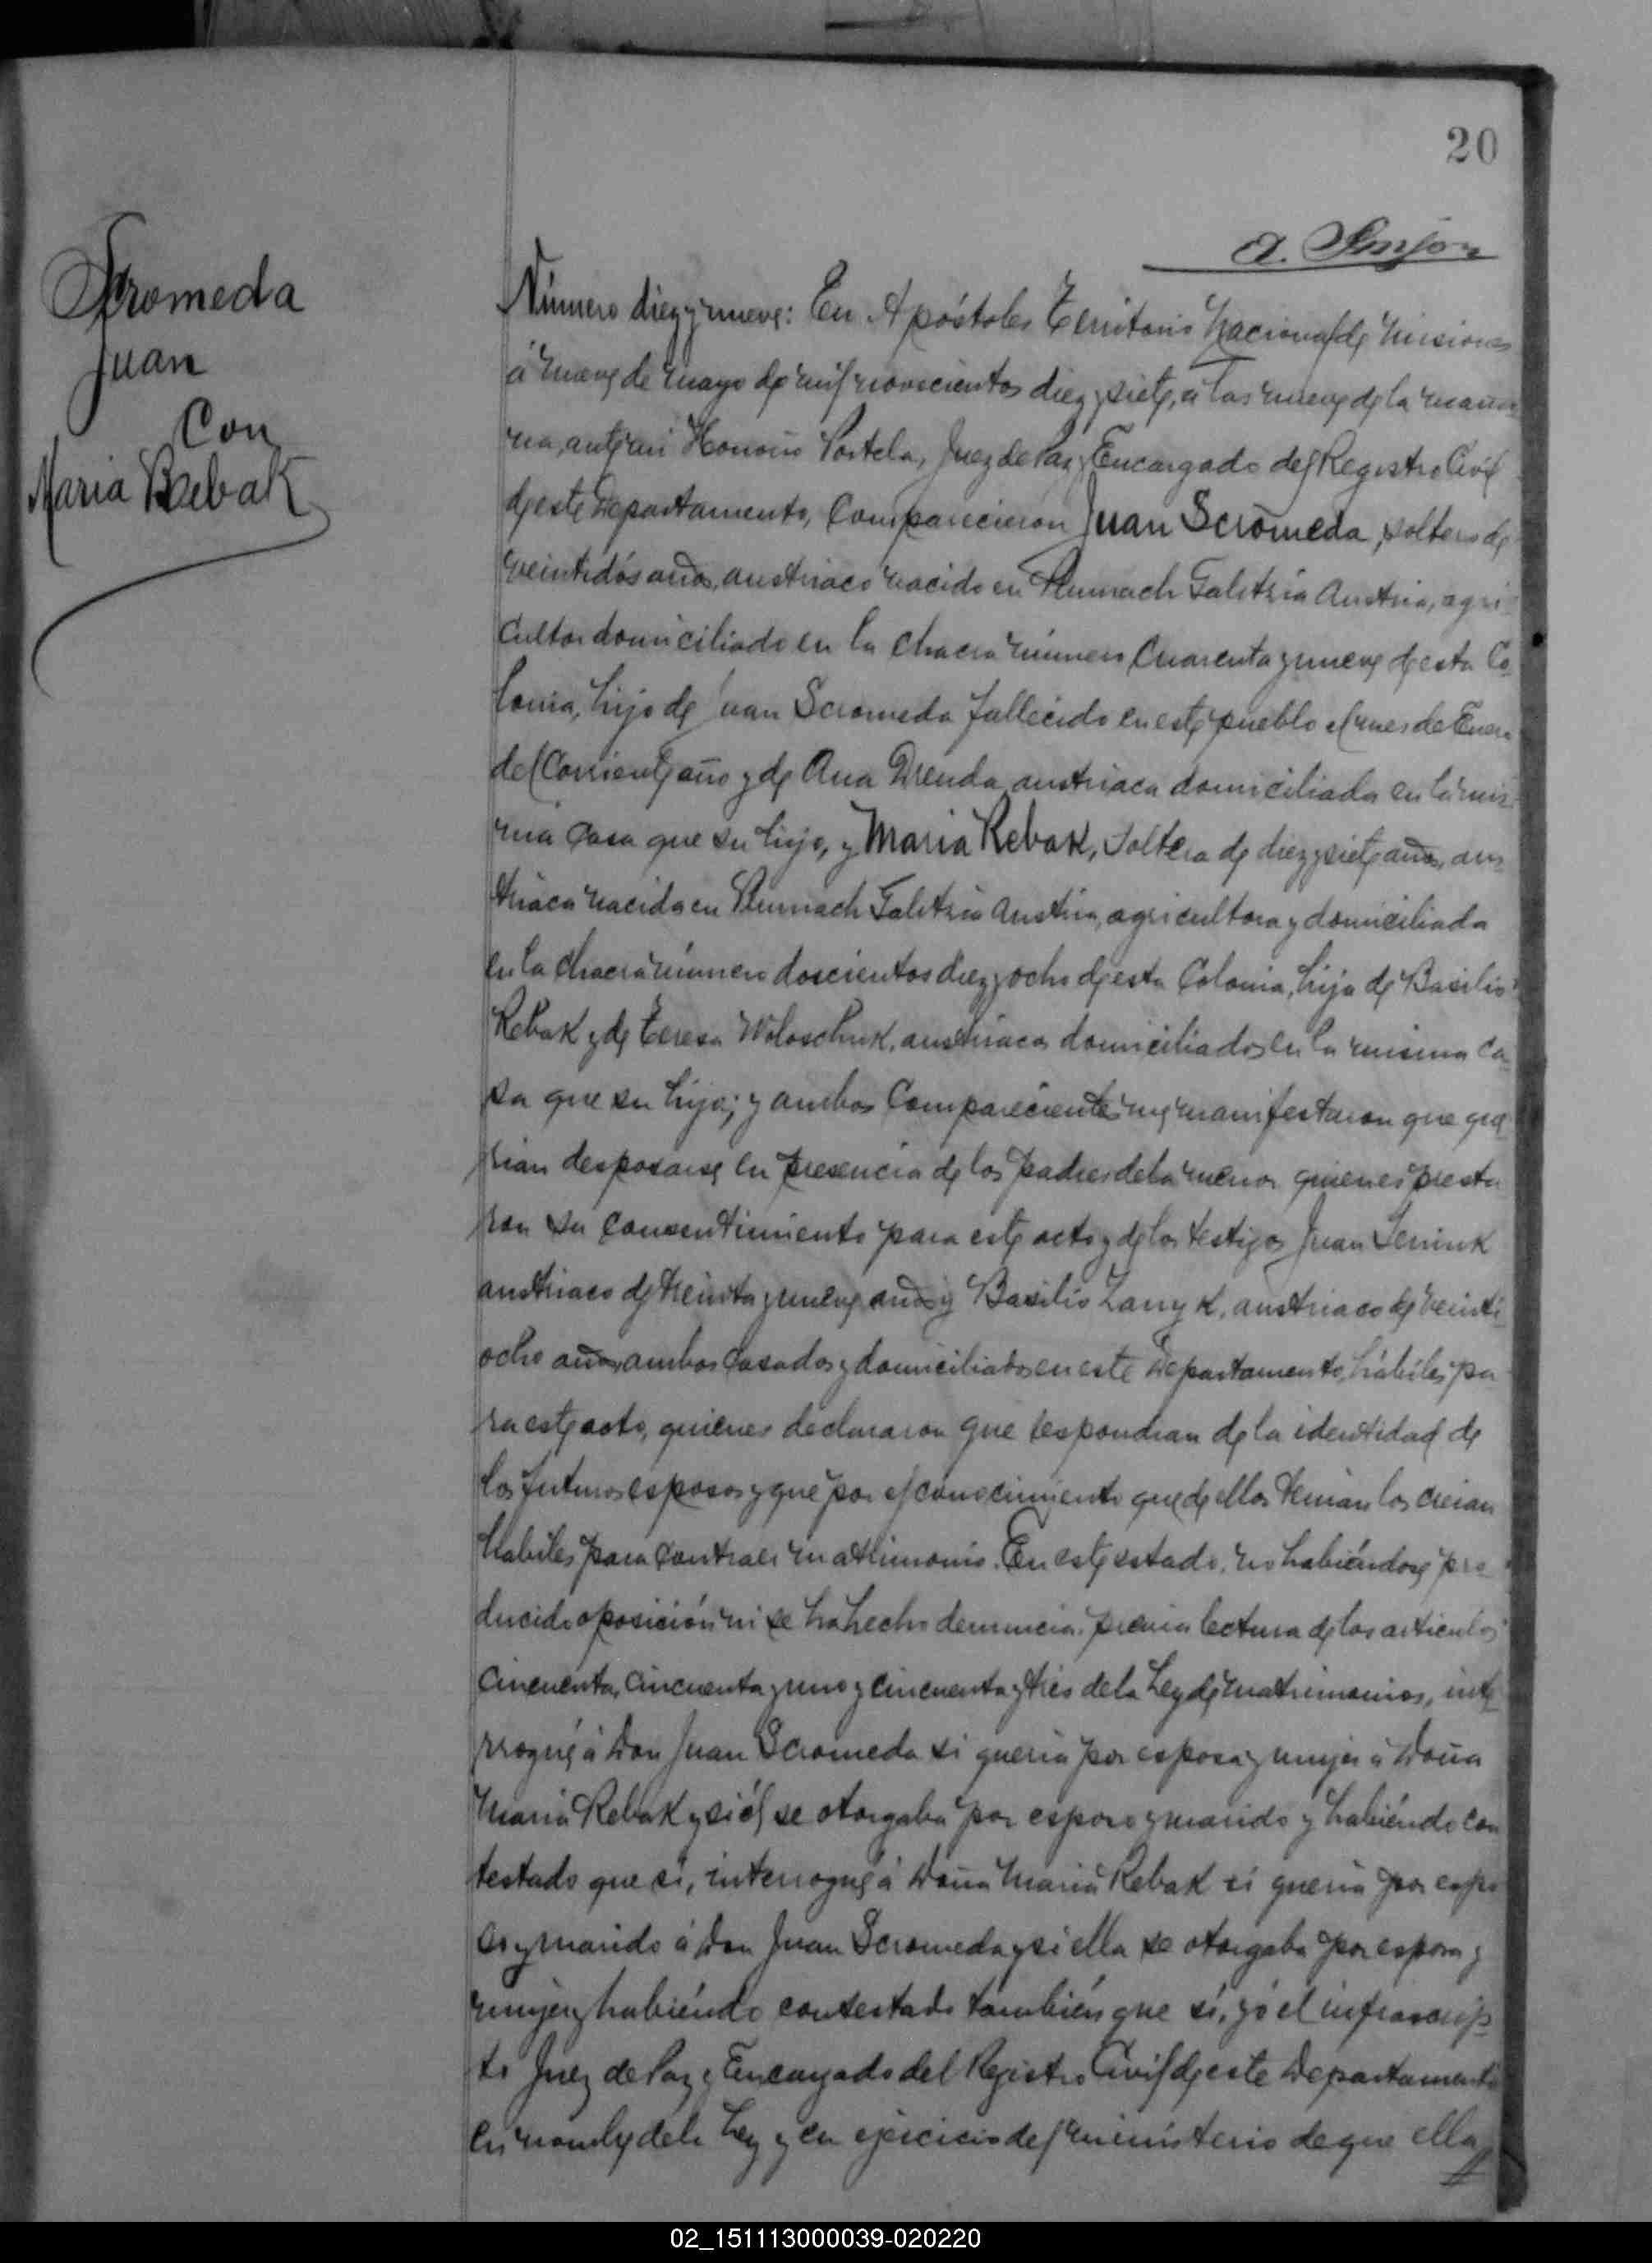 20
Scromeda
Juan
Con
Maria Rebak
Número diez y nueve: En Apóstoles Territorio Nacional de Misiones
á nueve de Mayo de mil novecientos diez y siete, á las nueve de la maña
na, ante mi Honorio Portela, Juez de Paz y Encargado del Registro Civil
de este Departamento, Comparecieron Juan Scromeda, soltero de
veintidós años, austriaco nacido en Tlumach Galitzia Austria, agri
cultor domiciliado en la chacra número Cuarenta y nueve de esta Co
lonia, hijo de Juan Scromeda fallecido en este pueblo el mes de Enero
del Corriente año y de Ana Drenda austriaca domiciliada en la mis
ma Casa que su hijo, y Maria Rebak, Soltera de diez y siete años, aus
triaca nacida en Tlumach Galitzia Austria, agricultora y domiciliada
en la chacra número doscientos diez y ocho de esta Colonia, hija de Basilio
Rebak y de Teresa Woloschuk, austriacos domiciliados en la misma ca
sa que su hija; y ambos Comparecientes me manifestaron que que
rian desposarse en presencia de los padres de la menor quienes presta
ron su consentimiento para este acto y de los testigos Juan Seniuk
austriaco de treinta y nueve años y Basilio Zaryk, austriaco de veinti
ocho años, ambos Casados y domiciliados en este Departamento, hábiles pa
ra este acto, quienes declararon que respondian de la identidad de
los futuros esposos y que por el conocimiento que de ellos tenian los creian
habiles para Contraer matrimonio. En este estado, no habiéndose pro
ducido oposición ni se ha hecho denuncia, previa lectura de los articulos
Cincuenta, Cincuenta y uno y cincuenta y tres de la Ley de Matrimonios, inte
rrogué á Don Juan Scromeda si queria por esposa y mujer á Doña
Maria Rebak y si él se otorgaba por esposo y marido y habiéndo con
testado que si, interrogué á Doña Maria Rebak si queria por espo
so y marido á Don Juan Scromeda y si ella se otorgaba por esposa y
mujer y habiéndo contestado también que si, yo el infrascrip
to Juez de Paz y Encargado del Registro Civil de este Departamento
en nombre de la Ley y en ejercicio del ministerio de que ella
02_151113000039-020220